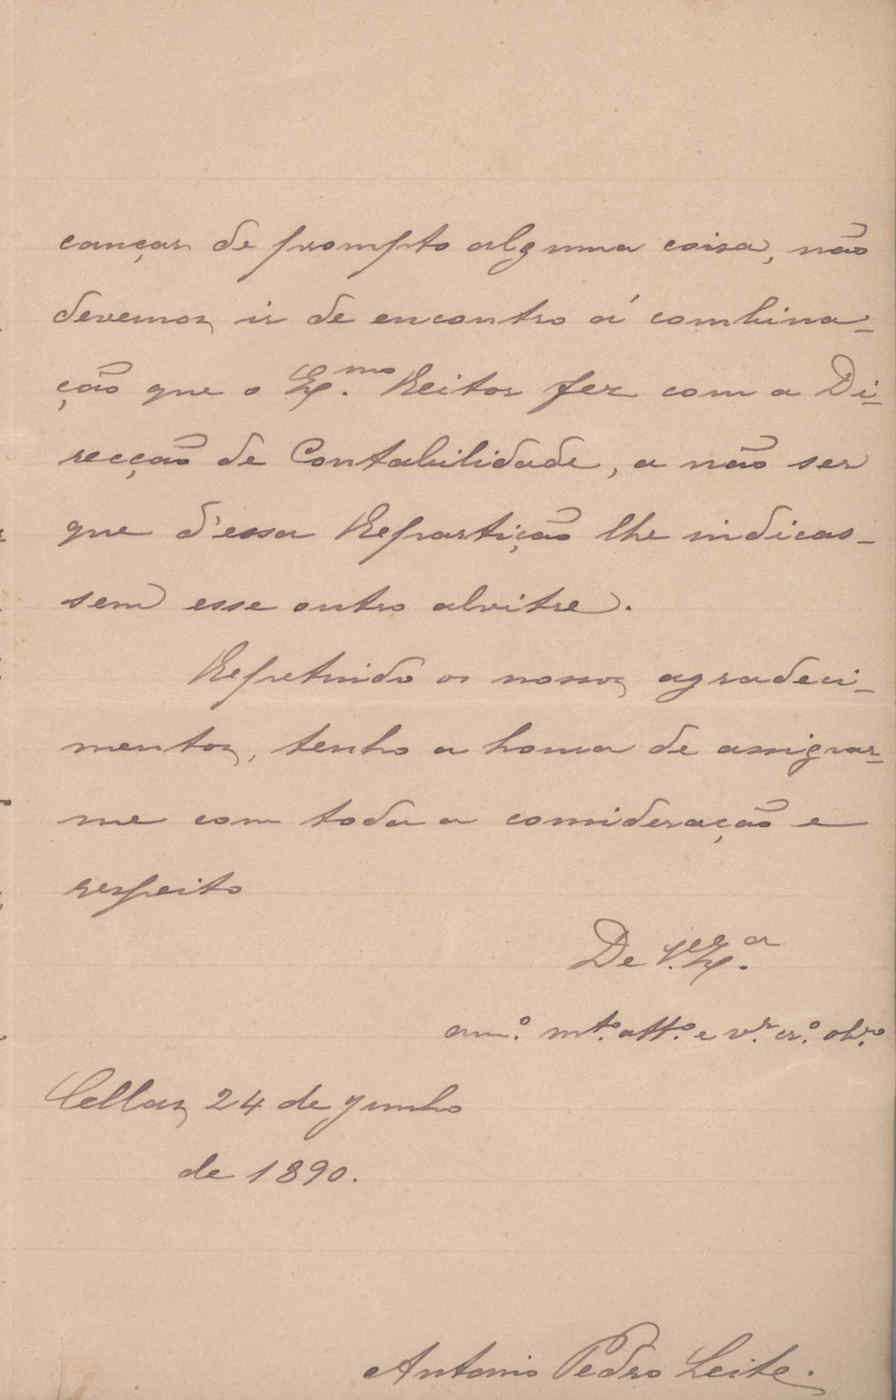 cançar de prompto alguma coisa, não
devemos ir de encontro á combina-
ção que o Ex.mo Reitor fez com a Di-
recção de Contabilidade, a não ser
que d'essa Repartição lhe indicas-
sem esse outro alvitre.
Repetindo os nossos agradeci-
mentos, tenho a honra de assignar-
me com toda a consideração e
respeito
De V. Ex.a
am.o mt.o att.o e v.r cr.o obr.o
Cellas, 24 de junho
de 1890.
Antonio Pedro Leite.